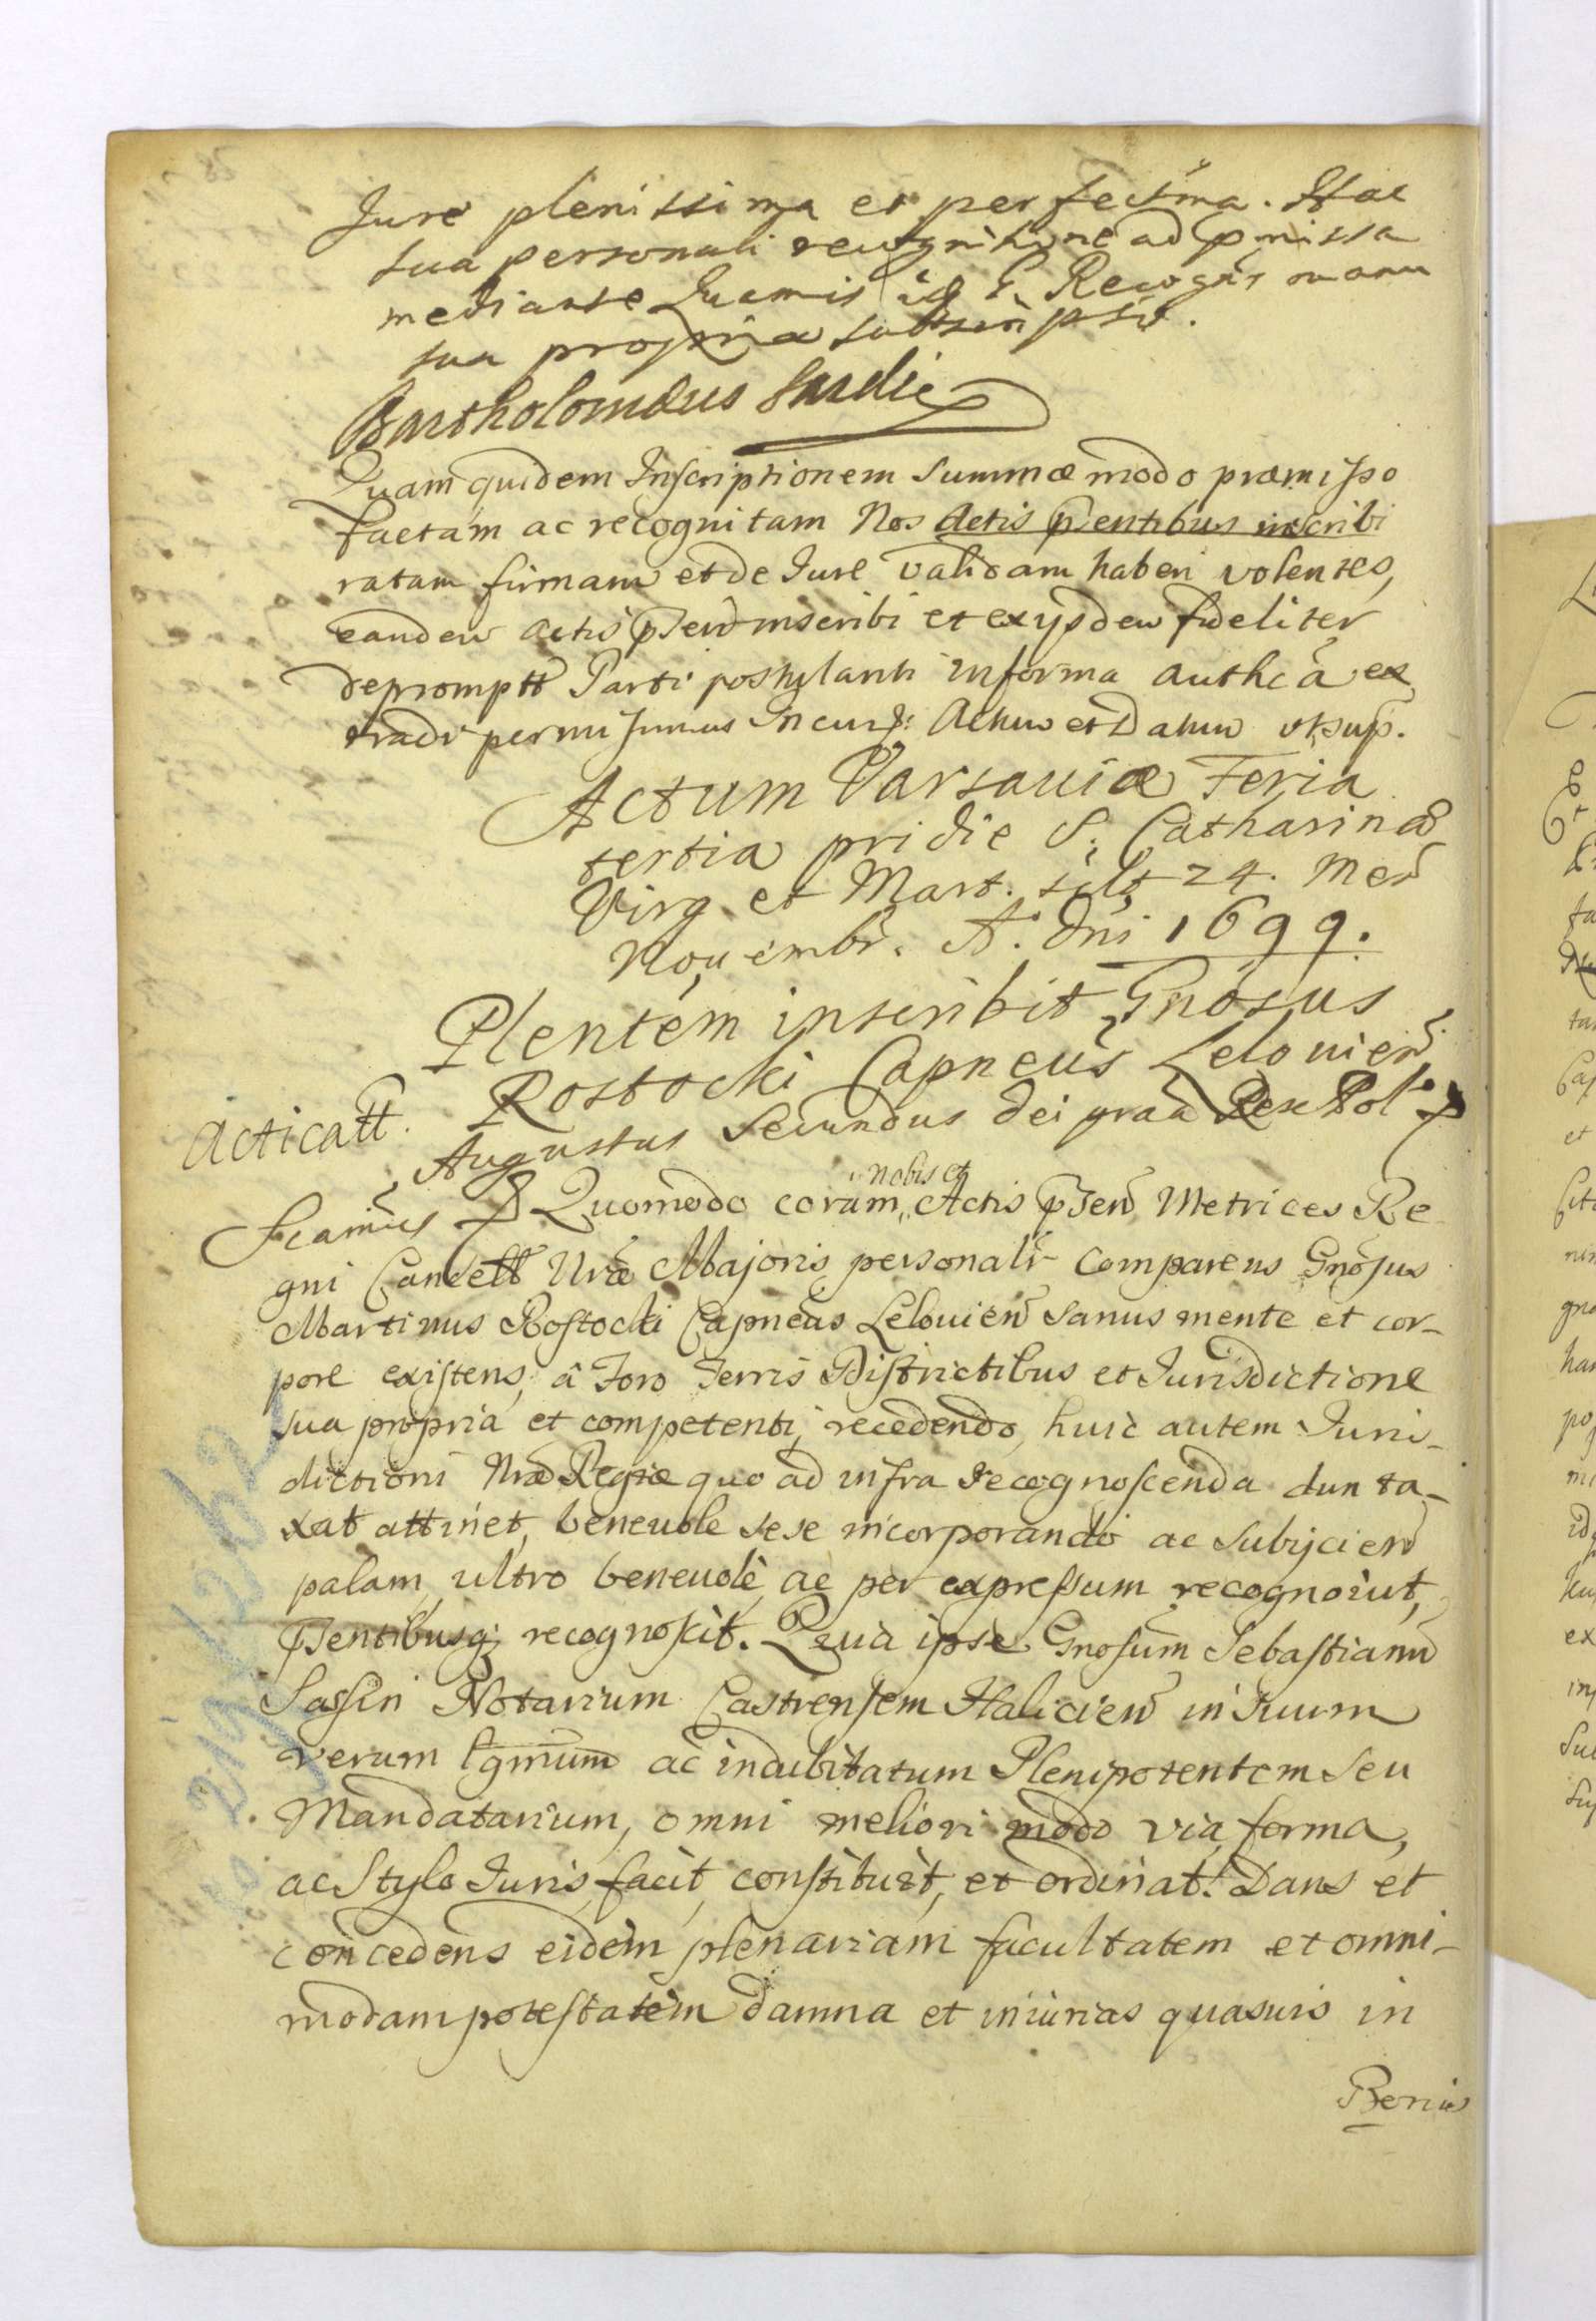 Jure plenissima et perfectĩma. Hac
sua personali recognitione ad pmissa
mediante Quamis id G. Recogñs manu
sua propria subscripsit.
Bartholomæus Sardi
Quam quidem Inscriptionem summæ modo præmisso
factam ac recognitam Nos Actis pñtibus inscribi
ratam firmam et de Jure validam haberi volentes,
eandem Actis pñen inscribi et ex ijsdem fideliter
depromptt Parti postulanti in forma authcã ex
tradi permisimus In cuius Actum et Datum ut sup.
Actum Varsauiæ Feria
tertia pridie S. Catharinæ
Virg. et Mart. silt 24. Men
Nouembr. A. Dni 1699.
Plentem inscribit Gnosus
Rostocki Capneus Lelouien
Acticatt.
Augustus Secundus Dei graã Rex Pol.
Scamus Quomodo coram nobis et Actis pñen Metrices Re
gni Cancell Nræ Majoris personalr comparens Gnosus
Martinus Rostocki Capneus Lelouien sanus mente et cor-
pore existens, â Foro Terris Districtibus et Jurisdictione
sua propria et competenti, recedendo, huic autem Juris-
dictioni Næ Regiæ quo ad infra recognoscenda dunta-
xat attinet, beneuole sese incorporando ac subijcien
palam, ultro beneuolè, ac per expressum recognouit,
pñentibusq; recognoscit. Quia ipse Gnosum Sebastianũ
Sassin Notarium Castrensem Halicien in suum
verum lgmum ac indubitatum Plenipotentem seu
Mandatarium, omni meliori modo via, forma,
ac Stylo Juris, facit, constituit, et ordinat. Dans et
concedens eidem plenariam facultatem et omni-
modam potestatem damna et iniurias quasuis in
Bonis